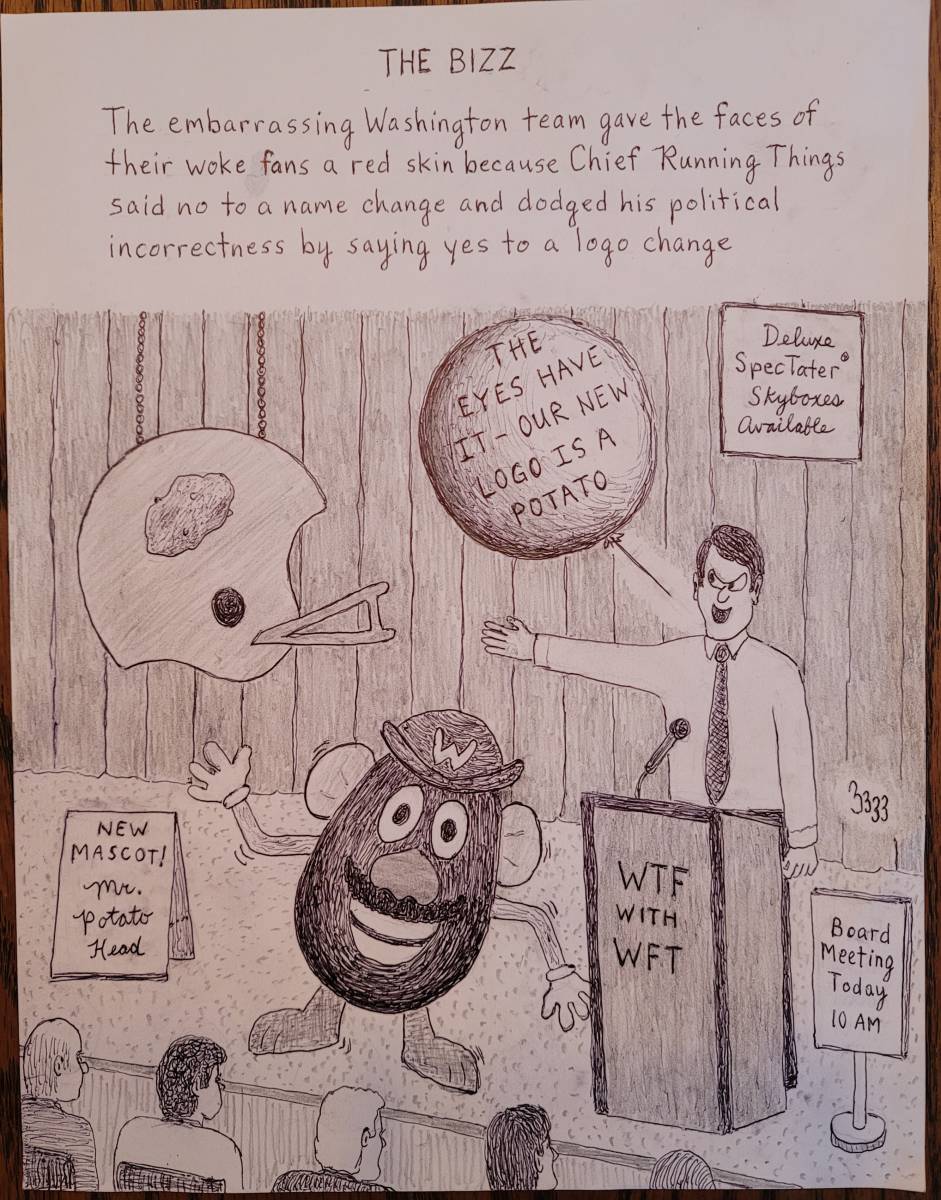 THE BIZZ
The embarrassing Washington team gave the faces of
their woke fans a red skin because Chief Running Things
said no to a name change and dodged his political
incorrectness by saying yes to a logo change
Deluxe
SpecTater®
Skyboxes
Available
THE
EYES HAVE
IT- OUR NEW
LOGO IS A
POTATO
W
3333
NEW
MASCOT!
Mr.
Potato
Head
WTF
WITH
WFT
Board
Meeting
Today
10 AM